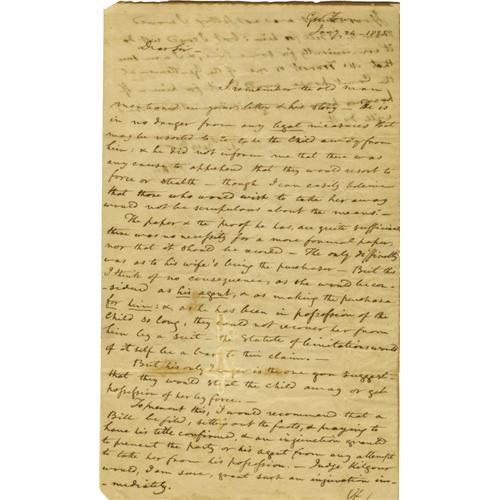 Geo Town
Jany. 24 - 1835
Dear Sir -
I remember the old man
mentioned in your letter & his story - He is
in no danger from any legal measures that
may be resorted to to take the child away from
him: & he did not inform me that there was
any cause to apprehend that they would resort to
force or stealth - though I can easily believe
that those who would wish to take her away
would not be scrupulous about the means. -
The paper & the proof he has, are quite sufficient
there was no necessity for a more formal paper,
nor that it should be recorded - The only difficulty
was as to his wife's being the purchaser - But this
I think of no consequence, as she would be con-
sidered as his agent, & as making the purchase
for him; & as he has been in possession of the
child so long, they could not recover her from
him by a suit - the Statute of limitations would
of itself be a bar to their claim. -
But his only danger is the one you suggest -
that they would steal the child away or get
possession of her by force. -
To prevent this, I would recommend that a
Bill be filed, setting out the facts, & praying to
have his title confirmed, & an injunction granted
to prevent the party or his agent from any attempt
to take her from his possession. - Judge Kilgour
would, I am sure, grant such an injunction im-
mediately.